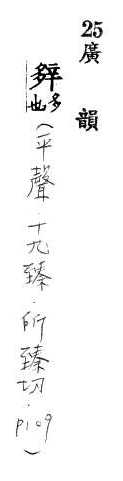 25廣韻
多也(平聲．十九臻．所臻切．p109)